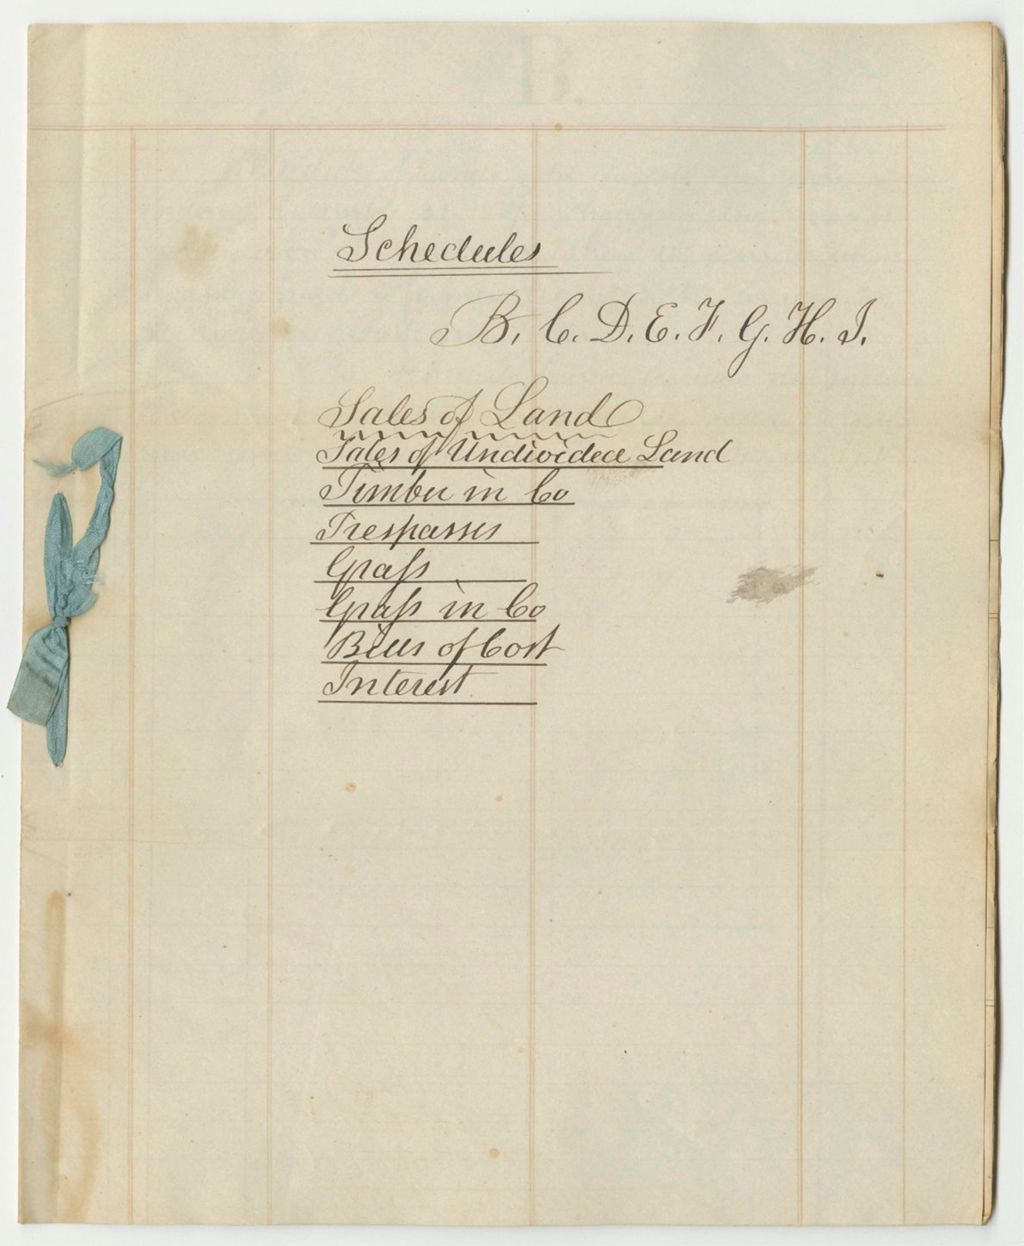 Schedules
B. C. D. E. F. G. H. I.
Sales of Land
Sales of Undivided Land
Timber in Co
Trespasses
Grass
Grass in Co
Bills of Cost
Interest